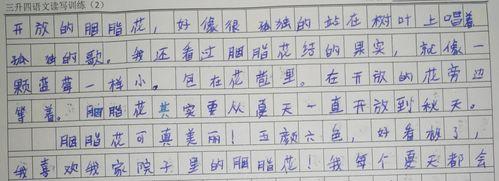 三升四语文读写训练（2）
开放的胭脂花，好像很孤独的站在树叶上唱着
孤独的歌。我还看过胭脂花结的果实，就像一
颗蓝莓一样小。包在花苞里。在开放的花旁边
等着。胭脂花其实要从夏天一直开放到秋天。
胭脂花可真美丽！五颜六色，好看极了，
我喜欢我家院子里的胭脂花！我每个夏天都会